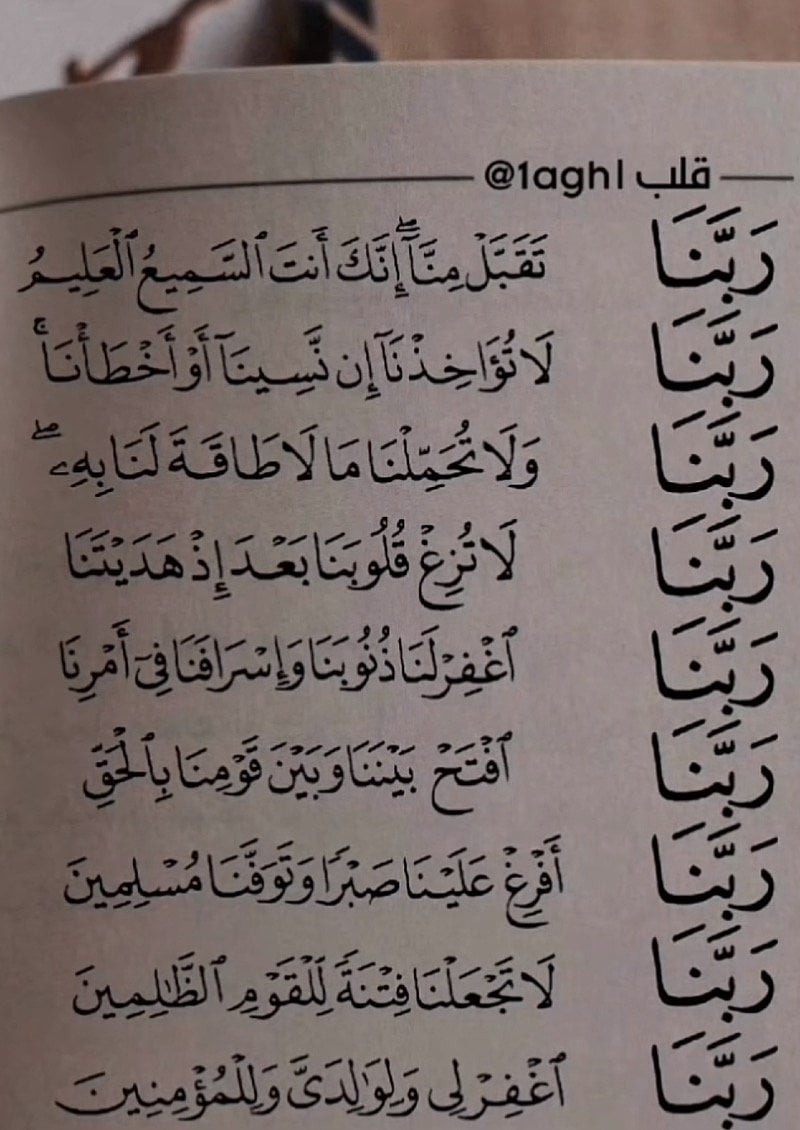 قلب @1aghl
رَبَّنَا تَقَبَّلْ مِنَّآ ۖ إِنَّكَ أَنتَ ٱلسَّمِيعُ ٱلْعَلِيمُ
رَبَّنَا لَا تُؤَاخِذْنَآ إِن نَّسِينَآ أَوْ أَخْطَأْنَا ۚ
رَبَّنَا وَلَا تُحَمِّلْنَا مَا لَا طَاقَةَ لَنَا بِهِۦ ۖ
رَبَّنَا لَا تُزِغْ قُلُوبَنَا بَعْدَ إِذْ هَدَيْتَنَا
رَبَّنَا ٱغْفِرْ لَنَا ذُنُوبَنَا وَإِسْرَافَنَا فِىٓ أَمْرِنَا
رَبَّنَا ٱفْتَحْ بَيْنَنَا وَبَيْنَ قَوْمِنَا بِٱلْحَقِّ
رَبَّنَا أَفْرِغْ عَلَيْنَا صَبْرًا وَتَوَفَّنَا مُسْلِمِينَ
رَبَّنَا لَا تَجْعَلْنَا فِتْنَةً لِّلْقَوْمِ ٱلظَّٰلِمِينَ
رَبَّنَا ٱغْفِرْ لِى وَلِوَٰلِدَىَّ وَلِلْمُؤْمِنِينَ